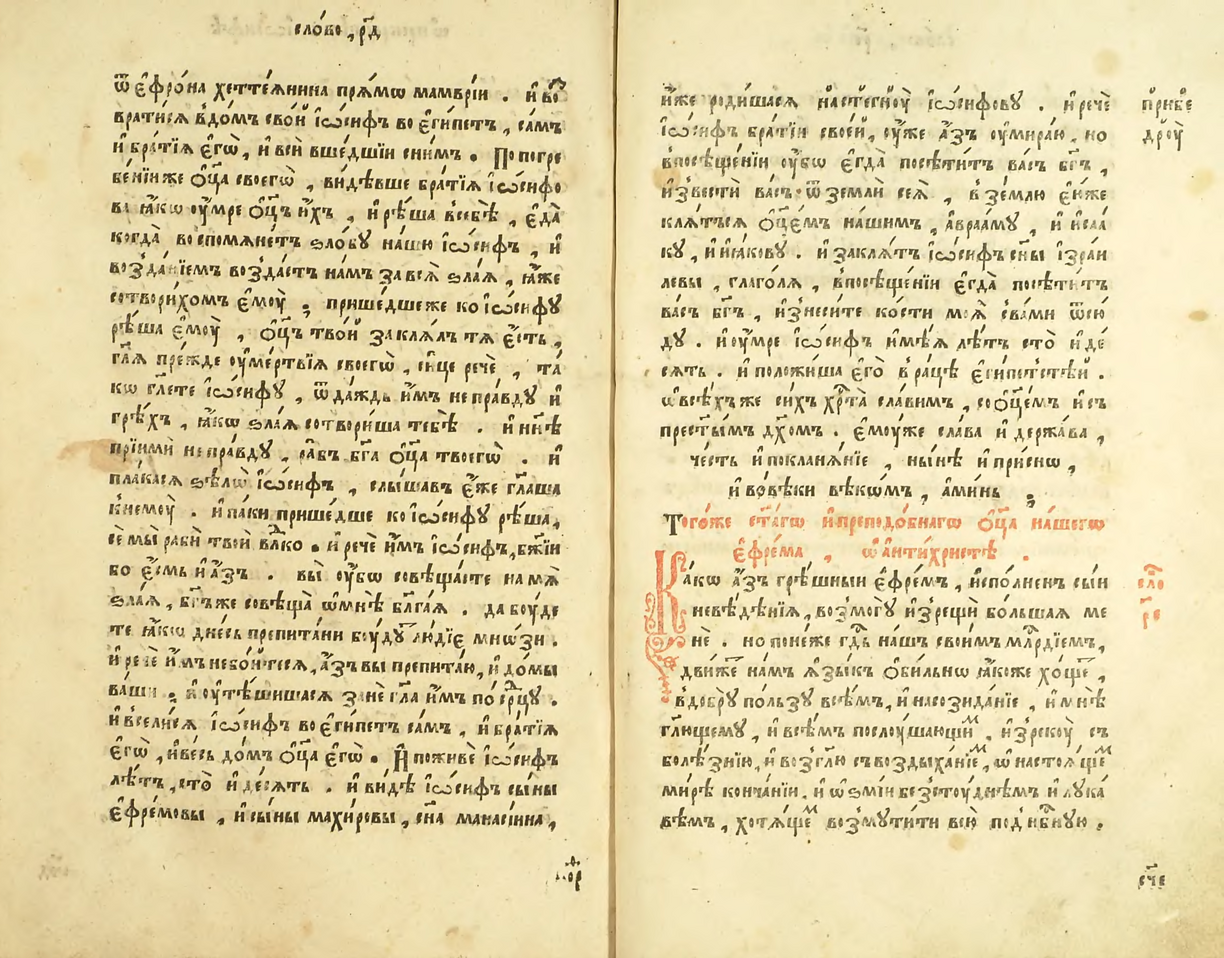 сло́во, р҃д
ѿ є҆фро́на хетте́ꙗнина прѧ́мѡ мамврі́и . и҆ во
врати́сѧ вдо́мъ сво́и і҆ѡ́сифъ во є҆ги́петъ , са́мъ
и҆ бра́тїѧ є҆гѡ̀ , и҆ всѝ вше́дшїи сни́мъ . По погре
бе́нїи же ѻ҆ц҃а̀ своегѡ̀ , ви́дѣвше бра́тїѧ і҆ѡ́сифо
ва ꙗ҆́кѡ ᲂу҆́мре ѻ҆ц҃ъ и҆́хъ , и҆ рѣ́ша всебѣ̀ , є҆да̀
когда̀ воспомѧне́тъ ѕло́бꙋ на́шю і҆ѡ́сифъ , и҆
воздаѧ́нїемъ возда́стъ на́мъ за всѧ̀ ѕла́ѧ , ꙗ҆̀же
сотвори́хомъ є҆моу̀ ; прише́дше же ко і҆ѡ́сифꙋ
рѣ́ша є҆моу̀ , ѻ҆ц҃ъ тво́и заклѧ́лъ тѧ є҆́сть ,
гл҃ѧ пре́жде ᲂу҆ме́ртьвїѧ своегѡ̀ , си́це речѐ , та́
кѡ гл҃ете і҆ѡ́сифꙋ , ѿда́ждь и҆̀мъ непра́вдꙋ и҆
грѣ́хъ , ꙗ҆́кѡ ѕла́ѧ сотвори́ша тебѣ̀ . и҆ нн҃ѣ
прїимѝ непра́вдꙋ , ра́въ бг҃а ѻ҆ц҃а̀ твоегѡ̀ . и҆
пла́касѧ ѕѣлѡ̀ і҆ѡ́сифъ , слы́шавъ є҆́же гл҃аша
кнемоу̀ . и҆ па́ки прише́дше ко і҆ѡ́сифꙋ рѣ́ша ,
сѐ мы̀ рабѝ твоѝ вл҃ко . и҆ речѐ и҆̀мъ і҆ѡ́сифъ , бж҃їи
бо є҆́смь и҆ а҆́зъ . вы̀ ᲂу҆̀бо совѣща́сте на мѧ̀
ѕла́ѧ , бг҃ъ же совѣща̀ ѡ҆ мнѣ̀ бл҃га́ѧ . да боу́де
те ꙗ҆́кѡ дне́сь препита́ни боу́дꙋ лю́дїє мнѡ́зи .
и҆ речѐ и҆̀мъ небо́итесѧ , а҆́зъ вы̀ препита́ю , и҆ до́мы
ва́ши . и҆ ᲂу҆тѣши́шасѧ занѐ гл҃а и҆̀мъ по ср҃цꙋ .
и҆ всели́сѧ і҆ѡ́сифъ во є҆ги́петъ са́мъ , и҆ бра́тїѧ
є҆гѡ̀ , и҆ ве́сь до́мъ ѻ҆ц҃а̀ є҆гѡ̀ . И҆ поживѐ і҆ѡ́сифъ
лѣ́тъ , сто̀ и҆ де́сѧть . и҆ ви́дѣ і҆ѡ́сифъ сы́ны
є҆фре́мовы , и҆ сы́ны махи́ровы , сн҃а манасі́ина ,
и҆̀же роди́шасѧ на стегноу̀ і҆ѡ́сифовꙋ . и҆ речѐ
і҆ѡ́сифъ бра́тїи свое́и , ᲂу҆жѐ а҆́зъ ᲂу҆мира́ю , но
впосѣще́нїи ᲂу҆̀бо є҆гда̀ посѣти́тъ ва́съ бг҃ъ ,
и҆ зве́сти ва́съ ѿ землѝ сеѧ̀ , в зе́млю є҆́иже
клѧ́тъсѧ ѻ҆ц҃е́мъ на́шимъ , а҆враа́мꙋ , и҆ и҆саа́
кꙋ , и҆ и҆а́ковꙋ . и҆ заклѧ́тъ і҆ѡ́сифъ сн҃ы і҆зра́и
левы , глаго́лѧ , впосѣще́нїи є҆гда̀ посѣти́тъ
ва́съ бг҃ъ , и҆знеси́те ко́сти моѧ̀ сва́ми ѿсю́
дꙋ . и҆ ᲂу҆́мре і҆ѡ́сифъ и҆мѣ́ѧ лѣ́тъ сто̀ и҆ де́
сѧть . и҆ положи́ша є҆го̀ в ра́цѣ є҆ги́петстѣи .
ѡ҆ всѣ́хъ же си́хъ хр҃та̀ сла́вимъ , со ѻ҆ц҃е́мъ и҆ съ
прест҃ы́мъ дх҃омъ . є҆моу́же сла́ва и҆ держа́ва ,
че́сть и҆ покланѧ́нїе , ны́нѣ и҆ при́снѡ ,
и҆ вовѣ́ки вѣкѡ́мъ , а҆ми́нь ;
Того́же ст҃а́гѡ и҆ преподо́бнагѡ ѻ҆ц҃а̀ на́шегѡ
є҆фре́ма , ѡ҆ а҆нти́христѣ .
Ка́кѡ а҆́зъ грѣ́шныи є҆фре́мъ , и҆спо́лненъ сы́и
невѣ́дѣнїѧ , возмогꙋ̀ и҆зрещѝ бо́льшаѧ ме
нѐ . но поне́же гд҃ь на́шъ свои́мъ млр҃дїемъ ,
дви́же на́мъ ѧ҆зы́къ ѻ҆би́льнѡ ꙗ҆́коже хо́ще ,
в до́брꙋ по́льзꙋ всѣ́мъ , и҆ на созида́нїе , и҆ мнѣ̀
гл҃ющемꙋ , и҆ всѣ́мъ послоу́шающимъ , и҆ зрекоу̀ съ
болѣ́знїю , и҆ возгл҃ю съ воздыха́нїемъ , ѡ҆ настоѧ́щемъ
ми́рѣ конча́нїи , и҆ ѡ҆ ѕмі́и безстоу́днѣмъ и҆ лꙋка́
вѣмъ , хотѧ́щемъ возмꙋти́ти всю̀ под нб҃ную .
при́бе
дроу̀
сло́
р҃е
сч҃е